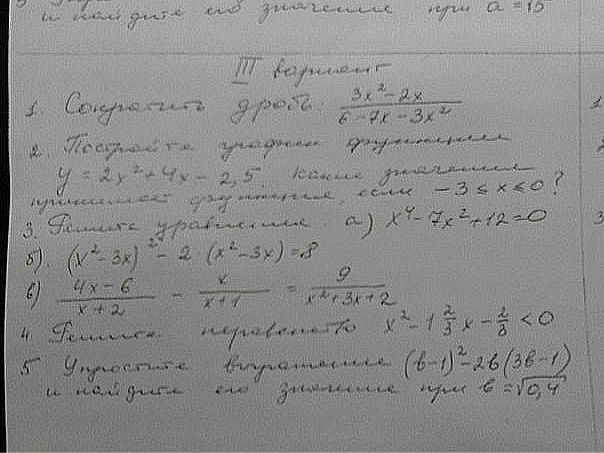 и найдите его значение при a = 15
III вариант
1. Сократить дробь: (3x² - 2x)/(6 - 7x - 3x²)
2. Постройте график функции
y = 2x² + 4x - 2,5. какие значения
принимает функция, если -3 ≤ x ≤ 0?
3. Решите уравнения. а) x⁴ - 7x² + 12 = 0
б). (x² - 3x)² - 2·(x² - 3x) = 8
в) (4x - 6)/(x + 2) - x/(x + 1) = 9/(x² + 3x + 2)
4. Решите неравенство x² - 1 2/3 x - 2/3 < 0
5 Упростите выражение (b - 1)² - 2b(3b - 1)
и найдите его значение при b = √0,4